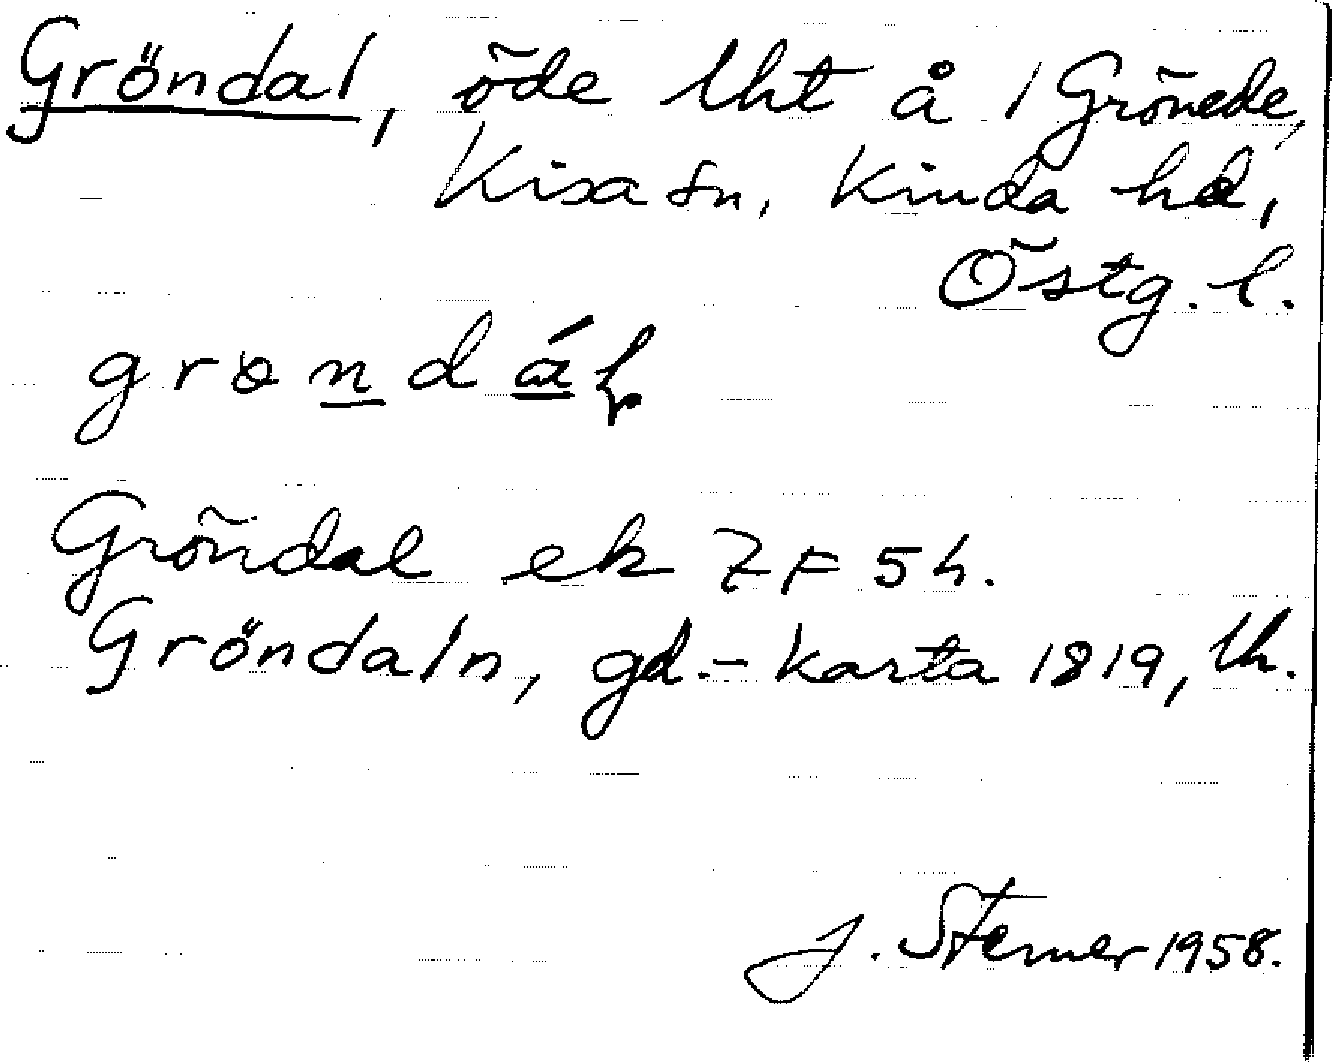 Gröndal, öde lht å 1 Grönede,
Kisa sn, Kinda hd,
Östg. l.
Gröndal ek 7 F 5 h.
Gröndaln, gd.- karta 1819, lh.
J. Sterner 1958.